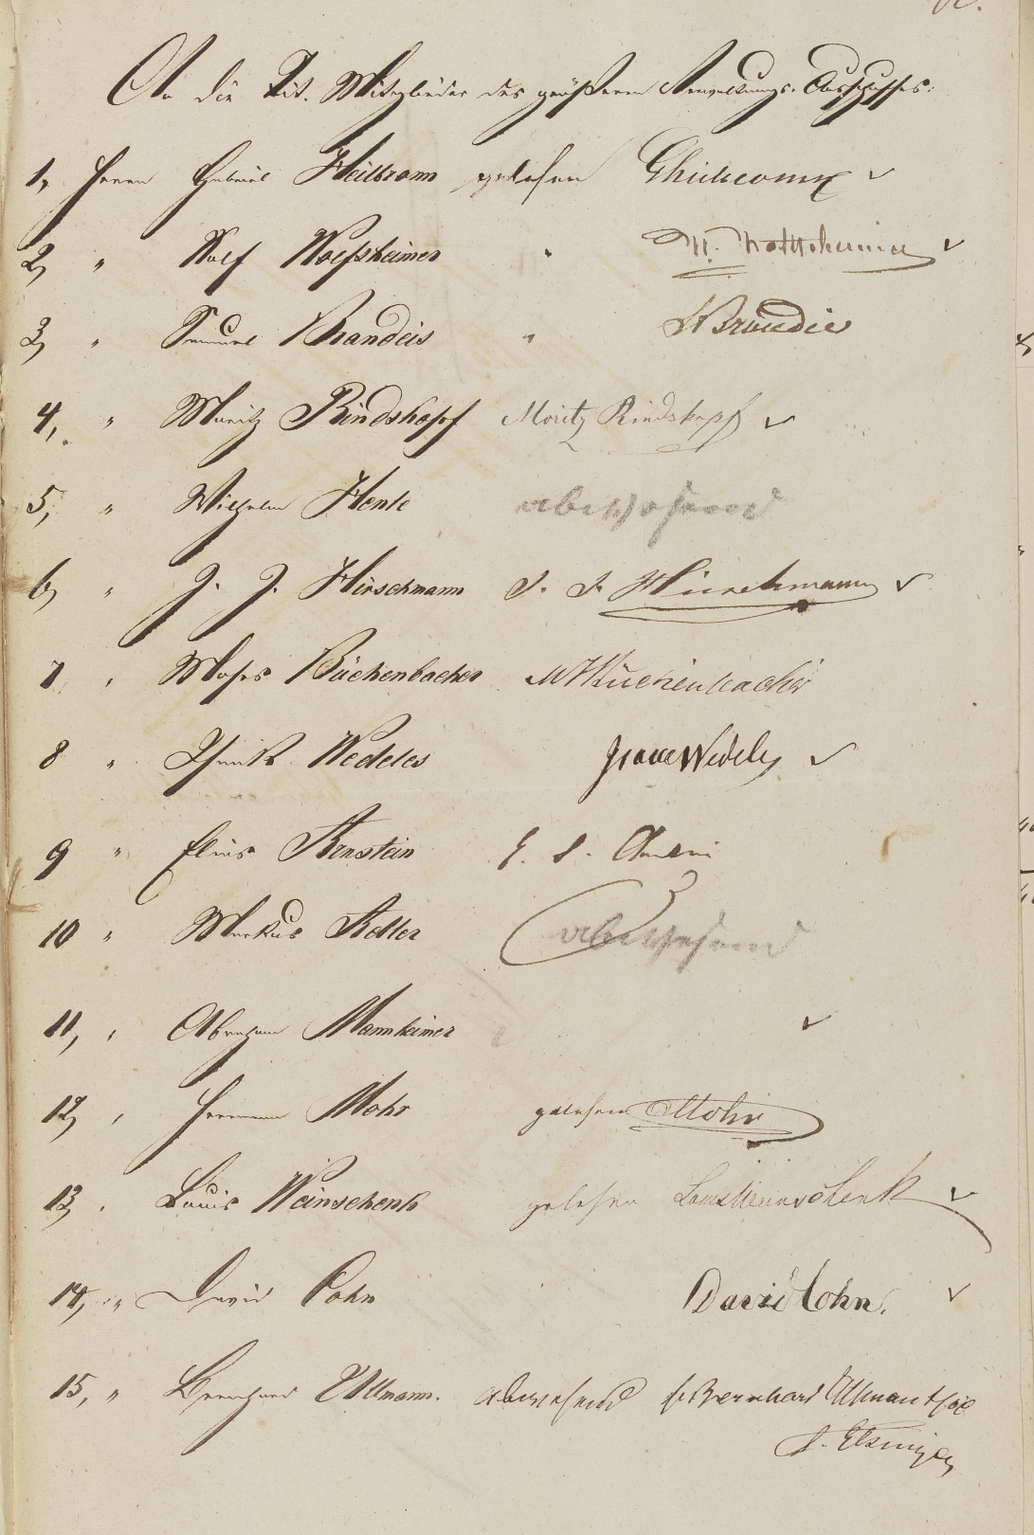 An die Tit. Mitglieder des größeren Verwaltungs-Ausschusses:
1, Herrn Gabriel Heilbronn gelesen ✓
2, " Wolf Wolfsheimer " ✓
3, " Samuel Brandeis " SBrandeis
4, " Moritz Rindskopf Moritz Rindskopf ✓
5, " Wilhelm Henle abwesend
6, " J. J. Hirschmann J. J. Hirschmann ✓
7 " Moses Büchenbacher MBüchenbacher
8 " Wedeles Wedeles ✓
9 " Elias Arnstein E. S.
10 " Markus Adler abwesend
11, " Abraham Mannheimer ✓
12, " Hermann Mohr gelesen Mohr
13, " Louis Weinschenk gelesen Louis Weinschenk ✓
14, " David Cohn David Cohn. ✓
15, " Bernhard Ullmann. abwesend Bernhard Ullmann